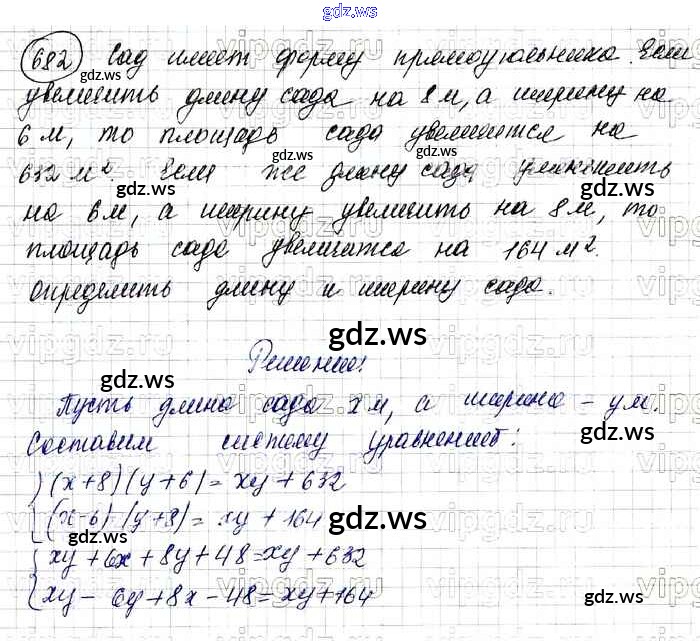 gdz.ws
682 Сад имеет форму прямоугольника. Если
увеличить длину сада на 8 м, а ширину на
6 м, то площадь сада увеличится на
632 м². Если же длину сада уменьшить
на 6 м, а ширину увеличить на 8 м, то
площадь сада увеличится на 164 м².
Определить длину и ширину сада.
Решение:
Пусть длина сада x м, а ширина - y м.
Составим систему уравнений:
(x+8)(y+6)=xy+632
(x-6)(y+8)=xy+164
xy+6x+8y+48=xy+632
xy-6y+8x-48=xy+164